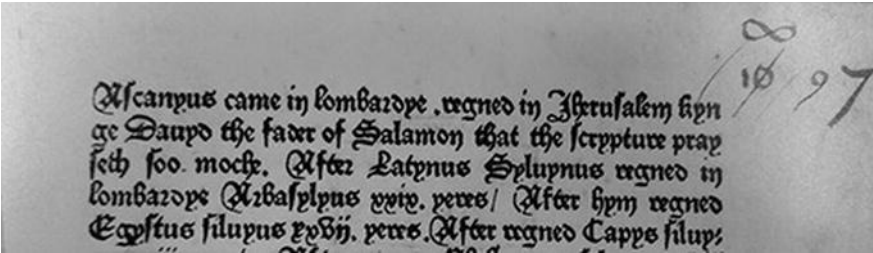 Ascanyus came in lombardye .regned in Iherusalem kyn
ge Dauyd the fader of Salamon that the scrypture pray
seth soo moche. After Latynus Syluynus regned in
lombardye Arbasylyus xxix. yeres/ After hym regned
Egystus siluyus xxvij. yeres. After regned Capys siluy: